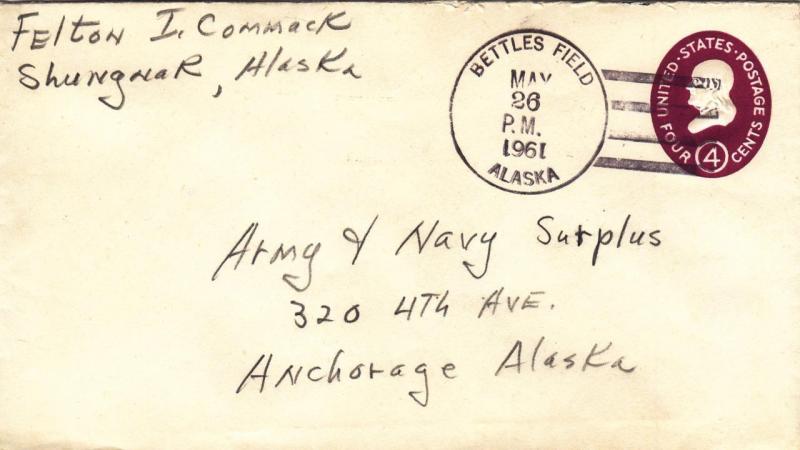 Felton I. Commack
Shungnak, Alaska
BETTLES FIELD
MAY
26
P.M.
1961
ALASKA
UNITED·STATES·POSTAGE
FOUR 4 CENTS
Army & Navy Surplus
320 4th Ave.
Anchorage Alaska